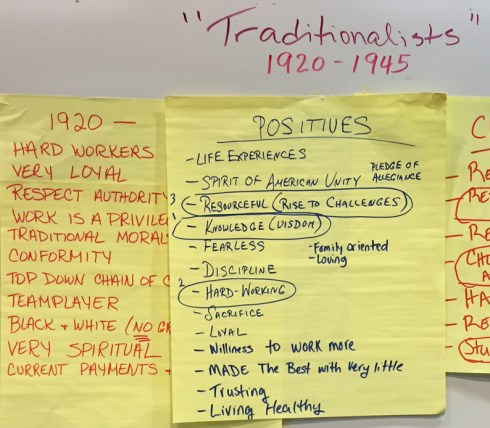 "Traditionalists"
1920 - 1945
1920 —
HARD WORKERS
VERY LOYAL
RESPECT AUTHORITY
WORK IS A
TRADITIONAL
CONFORMITY
TOP DOWN CHAIN OF
TEAMPLAYER
BLACK + WHITE (NO
VERY SPIRITUAL
CURRENT PAYMENTS
POSITIVES
- LIFE EXPERIENCES
- SPIRIT OF AMERICAN UNITY PLEDGE OF ALLEGIANCE
3 - RESOURCEFUL (RISE TO CHALLENGES)
1 - KNOWLEDGE (WISDOM)
- FEARLESS - Family oriented
- Loving
- DISCIPLINE
2 - HARD-WORKING
- SACRIFICE
- LOYAL
- Williness to WORK more
- MADE The Best with Very little
- Trusting
- Living Healthy